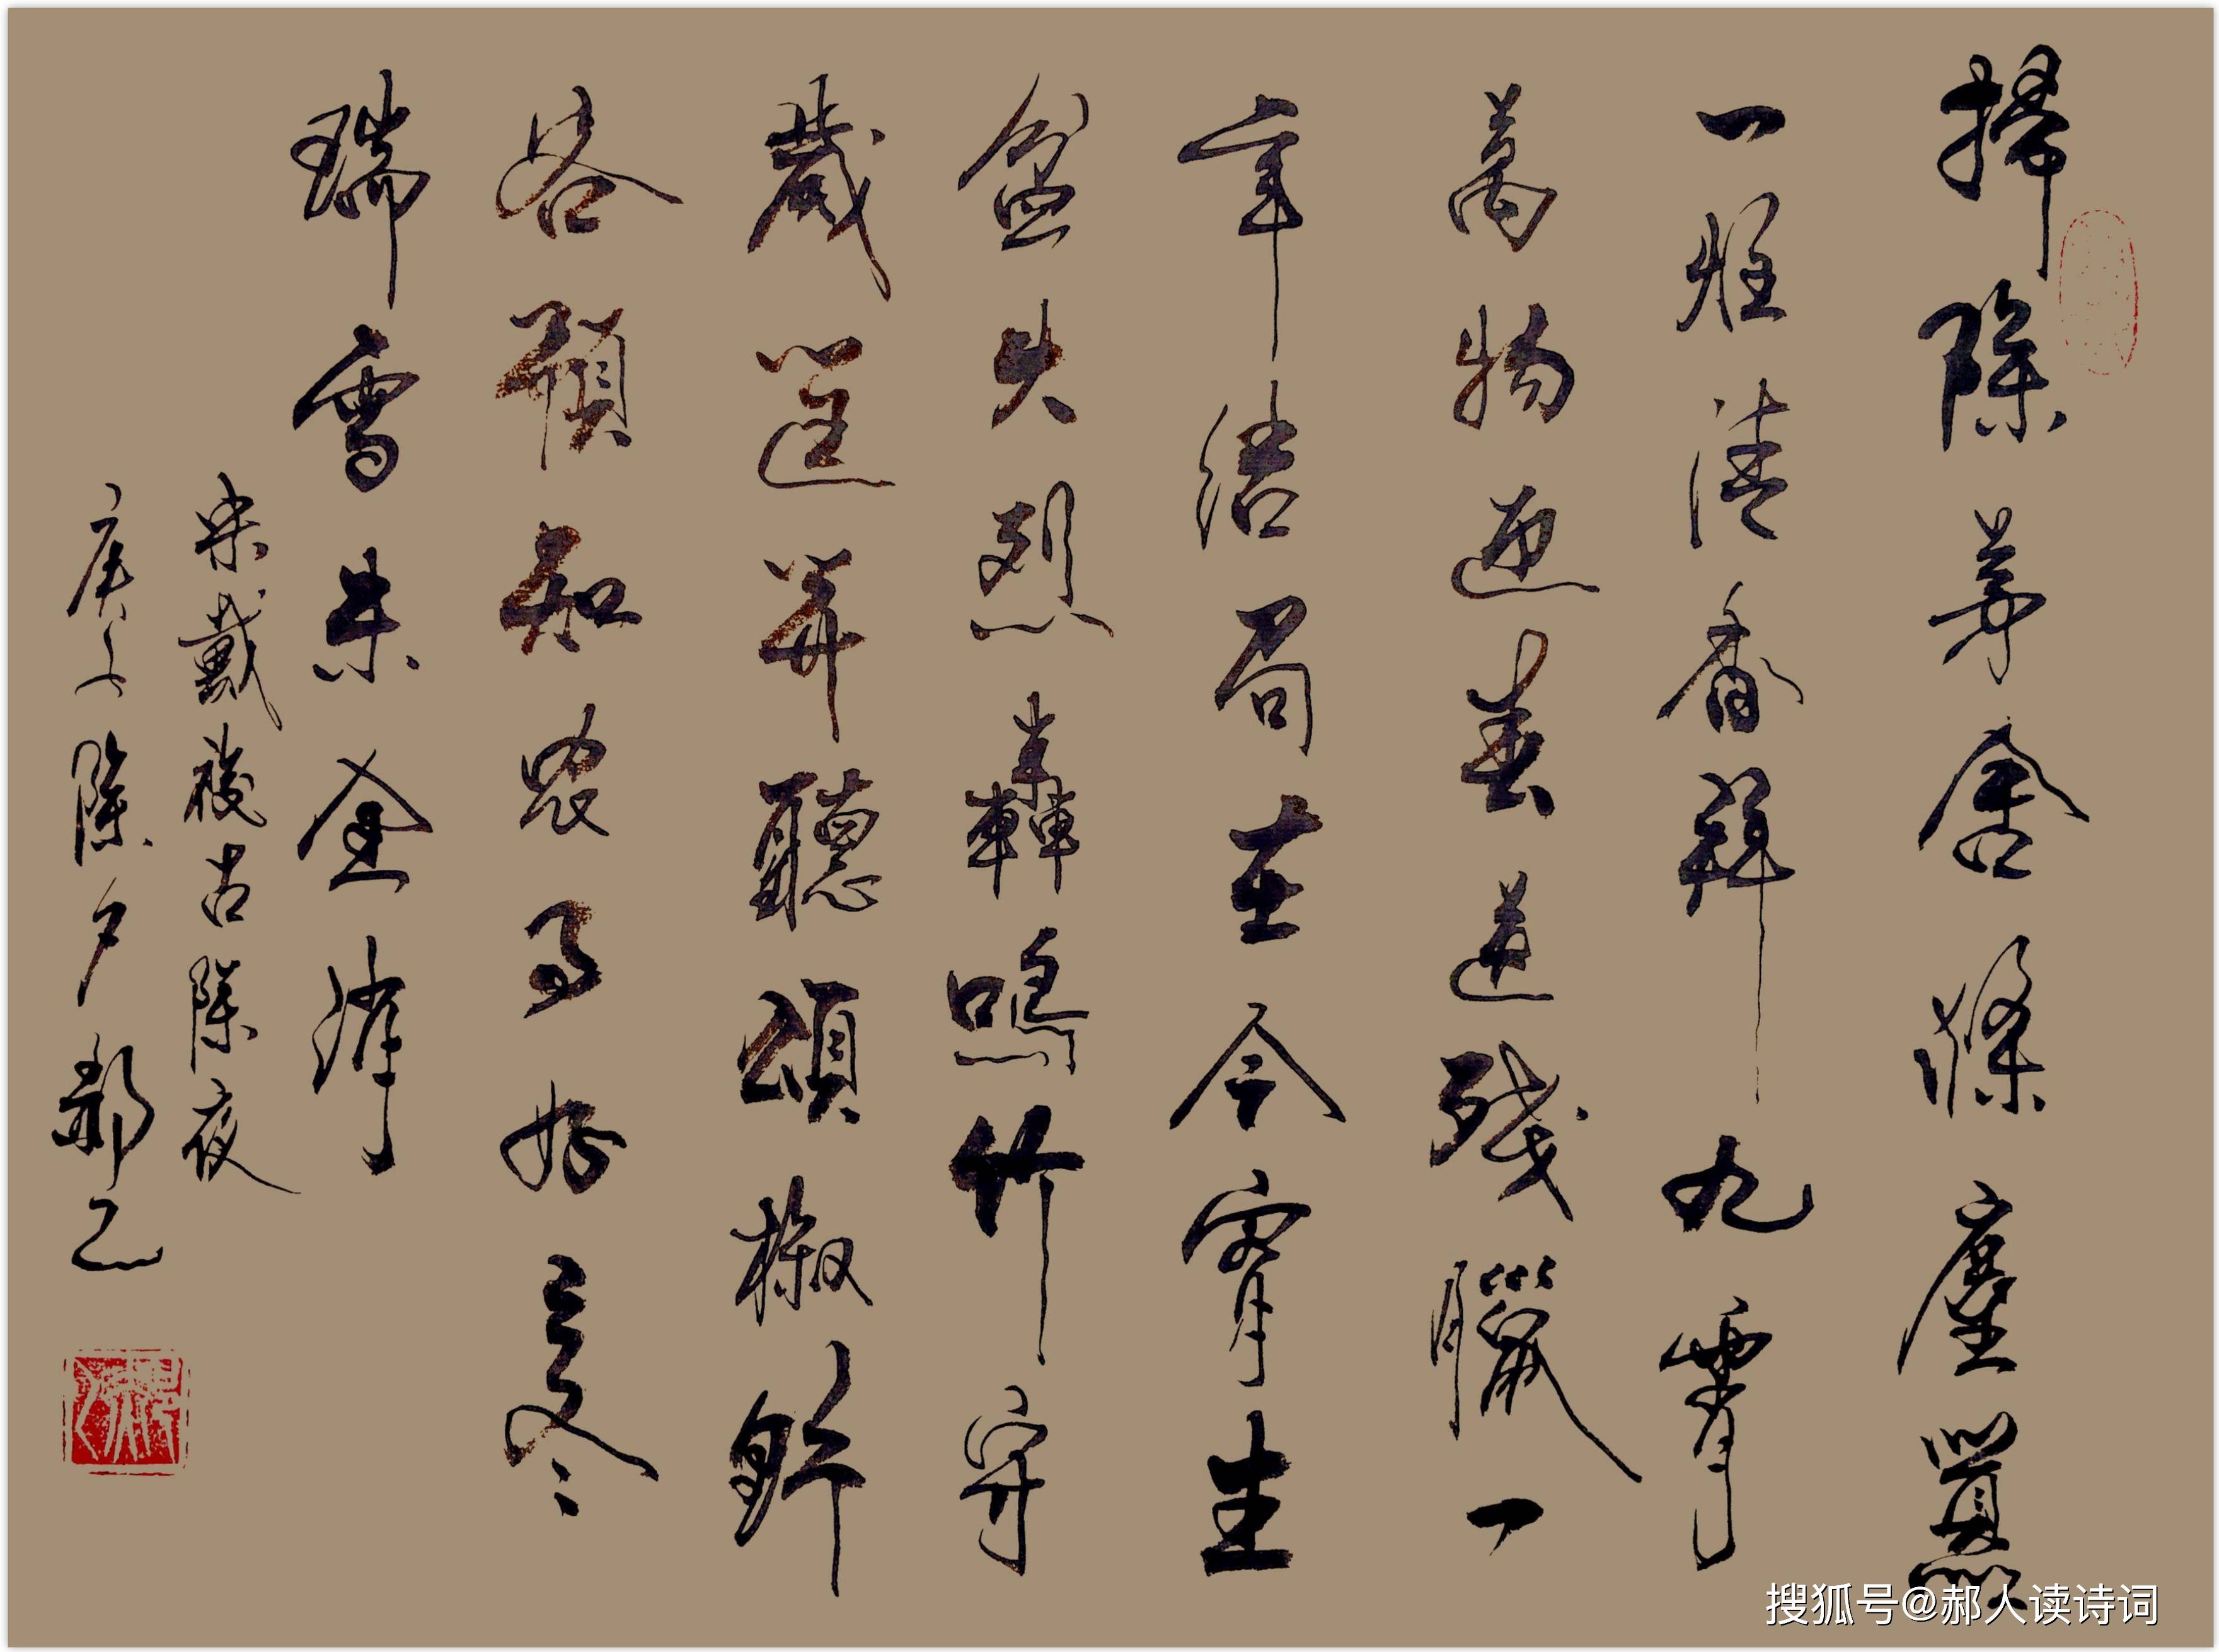 掃除茅舍滌塵囂
一炷清香拜九霄
萬物迎春送殘臘一
年結局在今宵生
盆火烈轟鳴竹守
歲筵開聽頌椒野
客預知农事好三冬
瑞雪未全消
宋戴復古除夜
庚子除夕郝乙
搜狐号@郝人读诗词